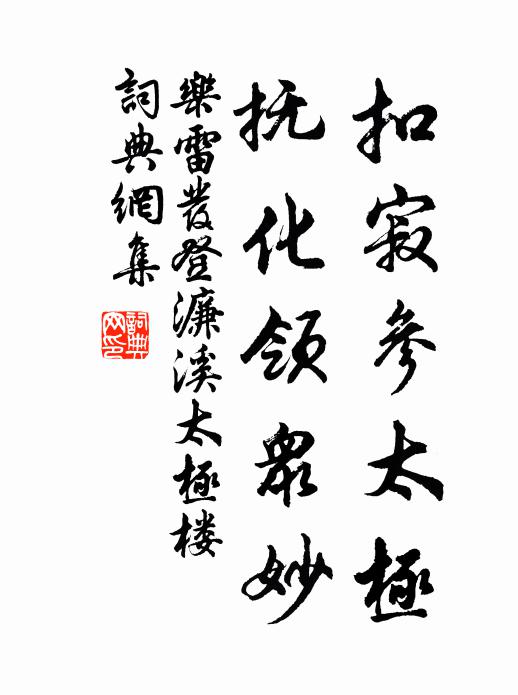 扣寂參太極
抚化領眾妙
樂雷發登濂溪太極楼
詞典網集
詞典网印